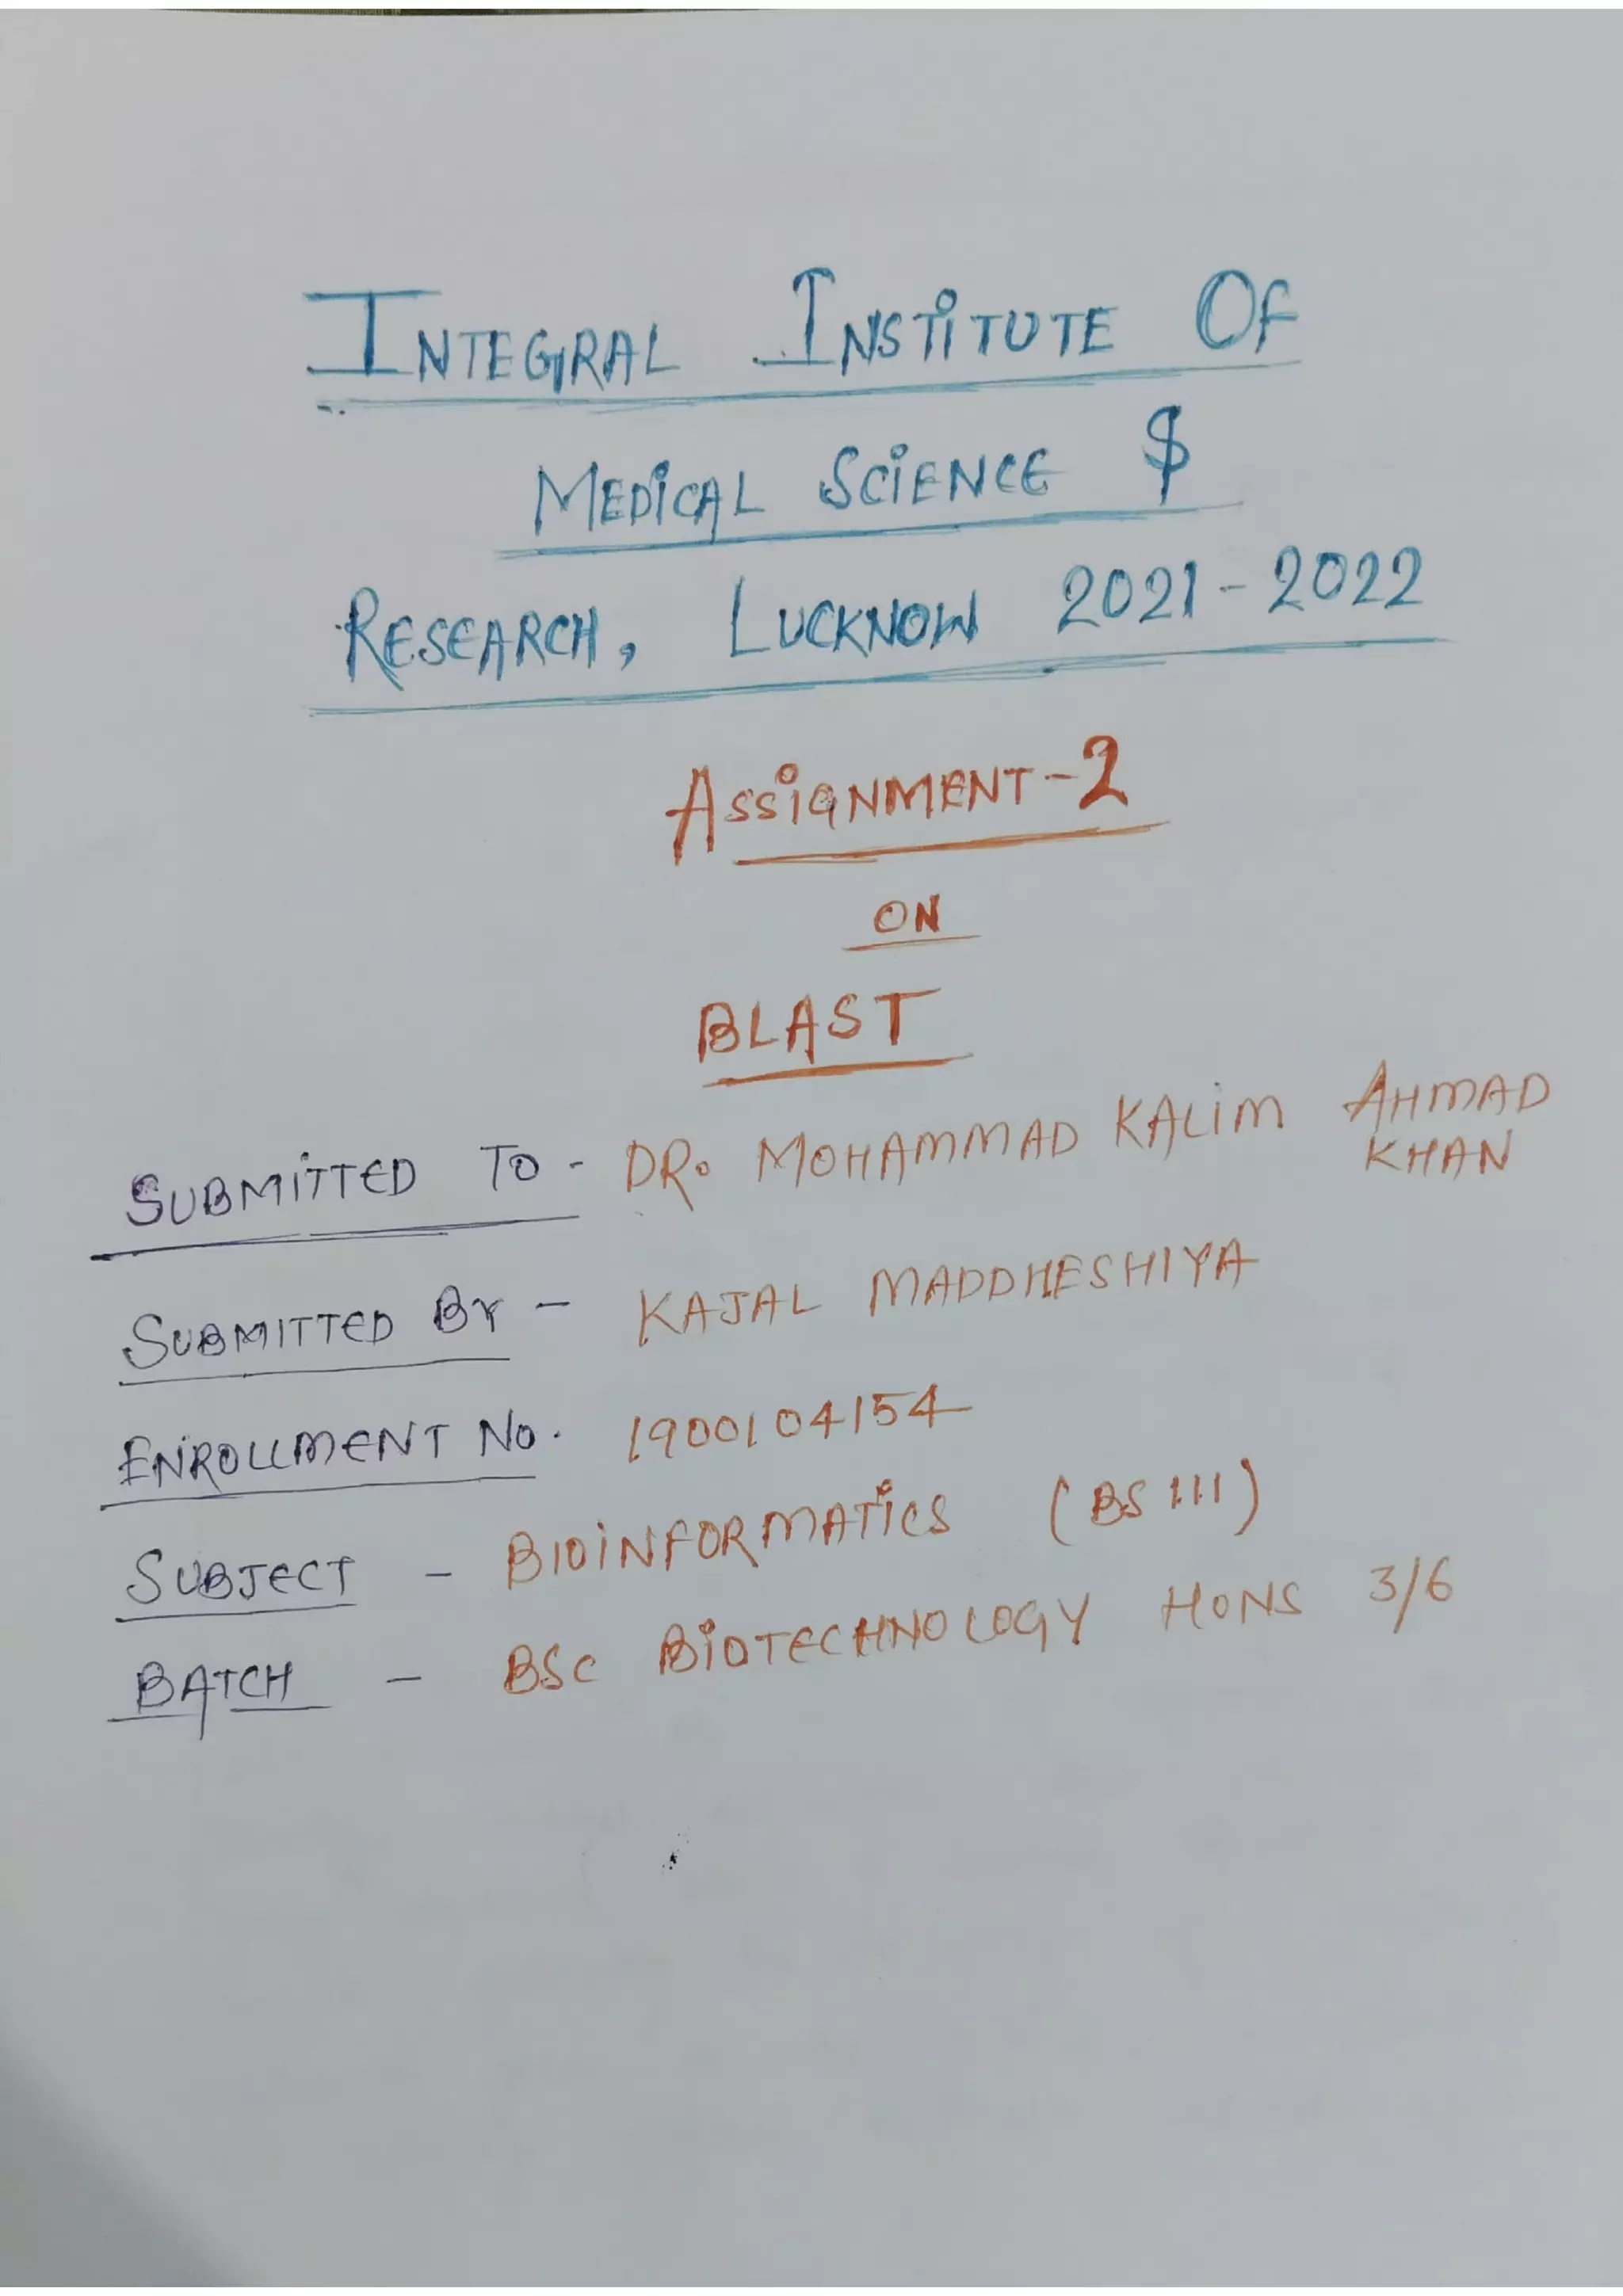 INTEGRAL INSTITUTE OF
MEDICAL SCIENCE $
RESEARCH, LUCKNOW 2021-2022
ASSIGNMENT-2
ON
BLAST
SUBMITTED TO - DR. MOHAMMAD KALIM AHMAD
KHAN
SUBMITTED BY - KAJAL MADDHESHIYA
ENROLLMENT NO. 1900104154
SUBJECT - BIOINFORMATICS (BS 111)
BATCH - BSC BIOTECHNOLOGY HONS 3/6